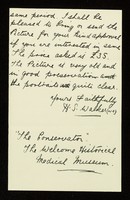 same period I shall be
pleased to Bring or send the
Picture for your kind approval
if you are interested in same
The price asked is £35.
The Picture is very old and
in good preservation with
the portraits quite clear.
Yours Faithfully
H.S. Walker
"The Conservator"
The Wellcome Historical
Medical Museum.